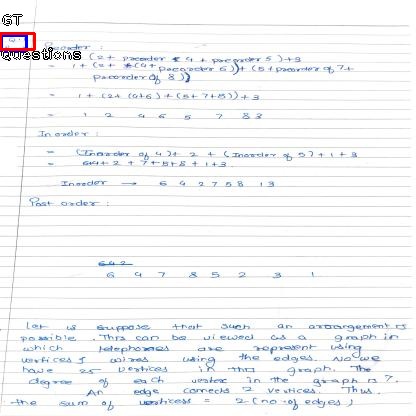 GT
Questions
Preorder :
(2 + preorder 4 + preorder 5) + 3
= 1 + (2 + (4 + preorder 6)) + (5 + preorder of 7 +
preorder of 8))
= 1 + (2 + (4+6) + (5+7+8)) + 3
= 1 2 4 6 5 7 8 3
Inorder :
= (Inorder of 4) + 2 + (Inorder of 5) + 1 + 3
= 6 4 + 2 + 7 + 5 + 8 + 1 + 3
Inorder → 6 4 2 7 5 8 1 3
Post order :
6 4 2
6 4 7 8 5 2 3 1
Let us suppose that such an arrangement is
possible. This can be viewed as a graph in
which telephones are represent using
vertices & wires using the edges. No we
have 25 vertices in this graph. The
degree of each vertex in the graph is 7.
An edge connects 2 vertices. Thus
the sum of vertices = 2 (no. of edges)